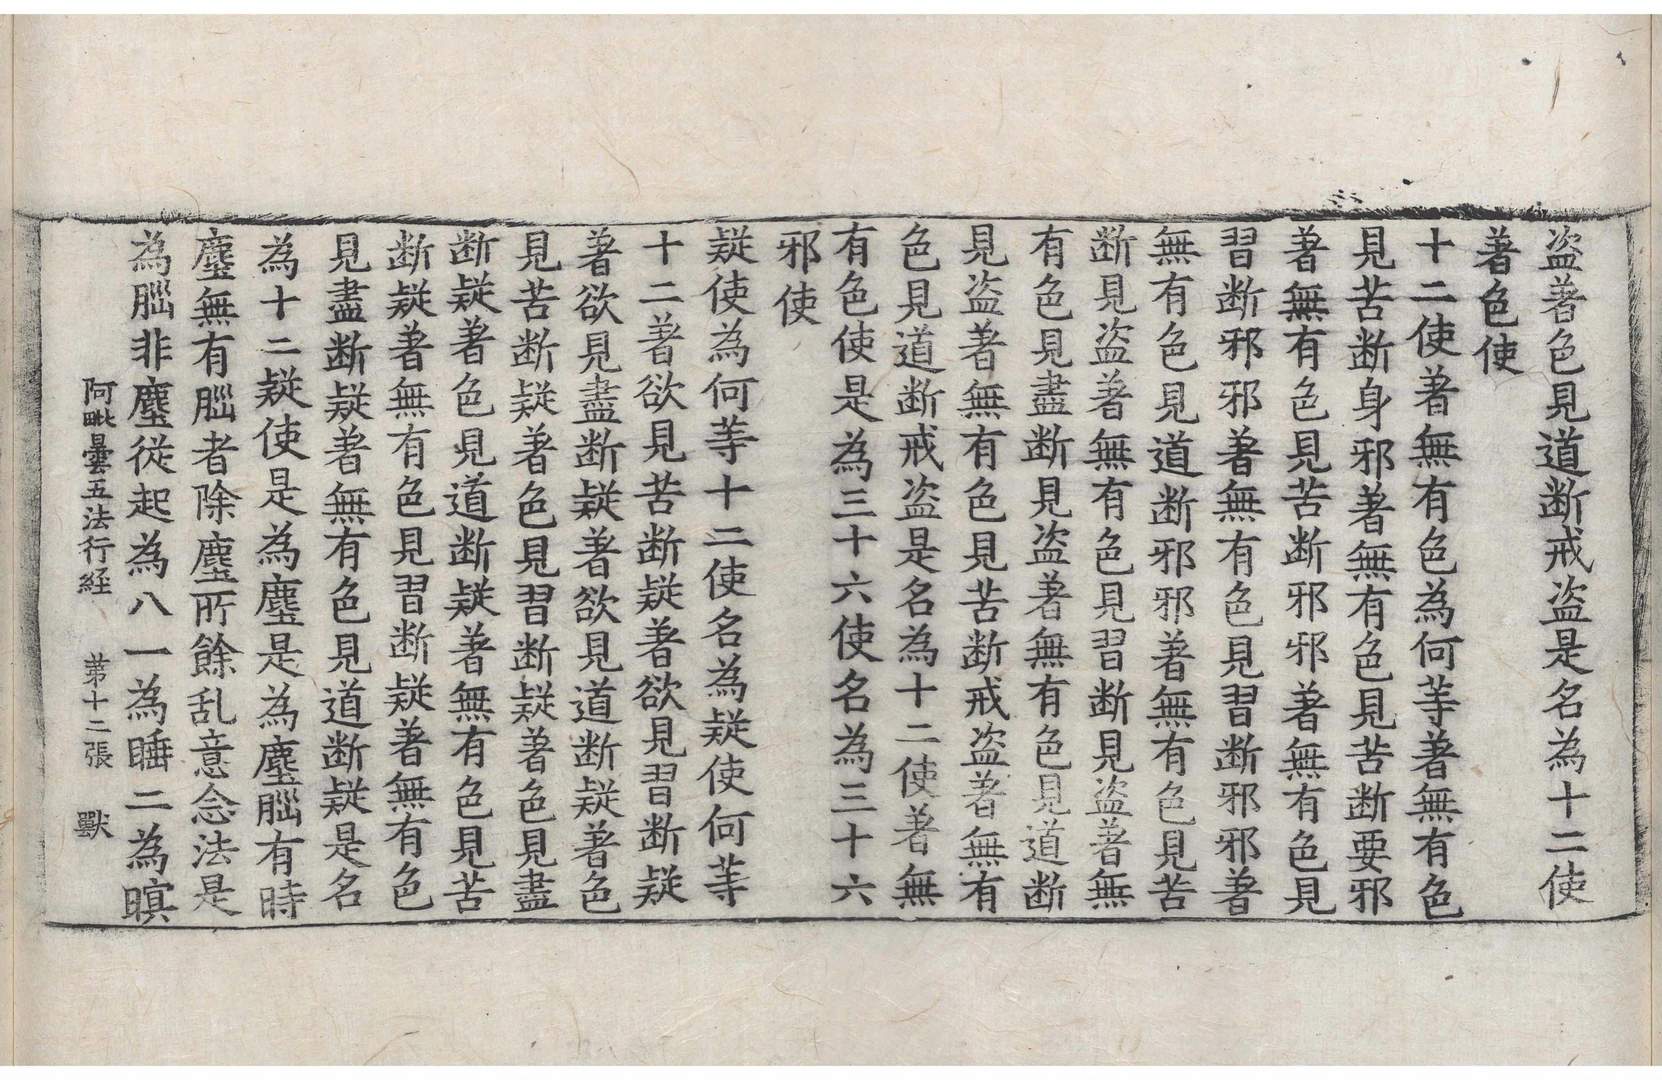 盗著色見道断戒盗是名為十二使
著色使
十二使著無有色為何等著無有色
見苦断身邪著無有色見苦断要邪
著無有色見苦断邪邪著無有色見
習断邪邪著無有色見習断邪邪著
無有色見道断邪邪著無有色見苦
断見盗著無有色見習断見盗著無
有色見盡断見盗著無有色見道断
見盗著無有色見苦断戒盗著無有
色見道断戒盗是名為十二使著無
有色使是為三十六使名為三十六
邪使
疑使為何等十二使名為疑使何等
十二著欲見苦断疑著欲見習断疑
著欲見盡断疑著欲見道断疑著色
見苦断疑著色見習断疑著色見盡
断疑著色見道断疑著無有色見苦
断疑著無有色見習断疑著無有色
見盡断疑著無有色見道断疑是名
為十二疑使是為塵是為塵腦有時
塵無有腦者除塵所餘乱意念法是
為腦非塵從起為八一為睡二為瞑
阿毗曇五法行経　第十二張　獸